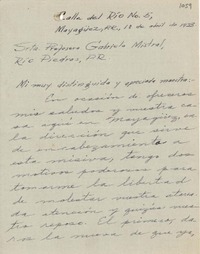 1029
Calle del Río No. 5,
Mayagüez, P.R., 12 de abril de 1933
Srta. Profesora Gabriela Mistral,
Río Piedras, P.R.
Mi muy distinguida y apreciada maestra:
En ocasión de ofreceros
mis saludos y nuestra ca-
sa aquí en Mayagüez, en
la dirección que sirve
de encabezamiento a
esta misiva, tengo dos
motivos poderosos para
tomarme la libertad
de molestar vuestra aten-
da atención y quizás nues-
tro reposo. El primero, da-
ros la nueva de que ya,